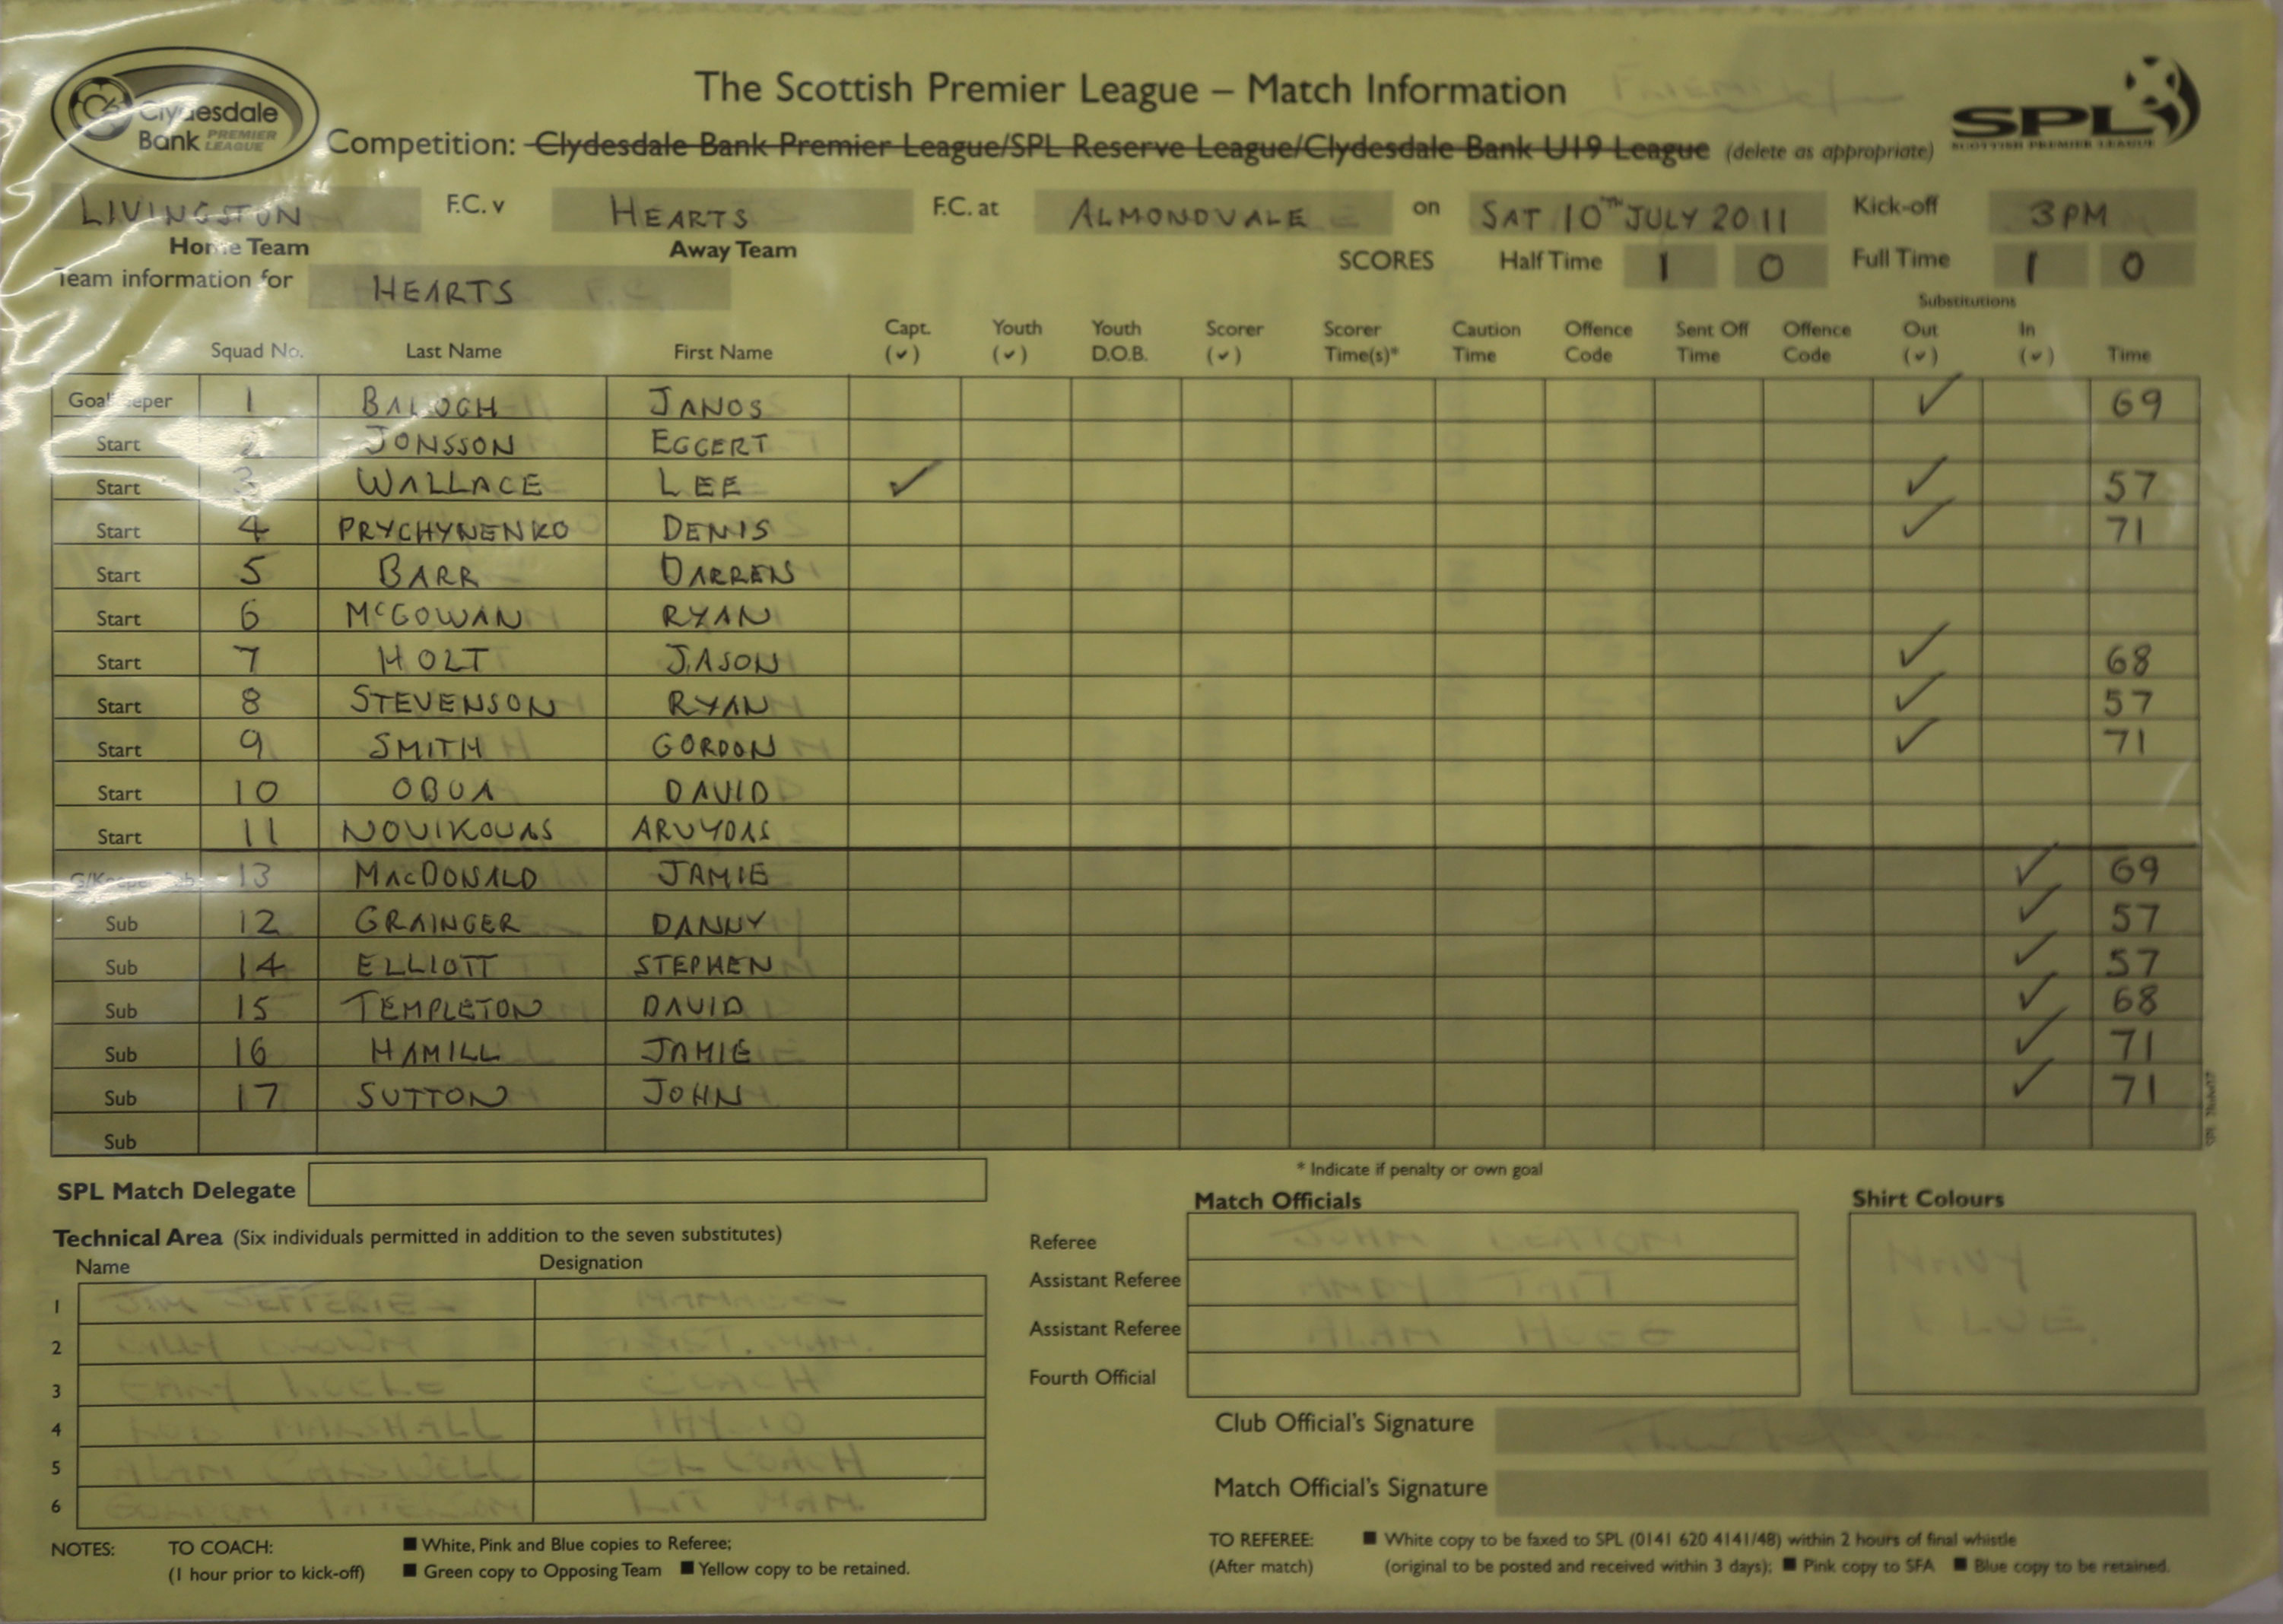 The Scottish Premier League – Match Information
Clydesdale Bank PREMIER LEAGUE
SPL SCOTTISH PREMIER LEAGUE
Competition: Clydesdale Bank Premier League/SPL Reserve League/Clydesdale Bank U19 League (delete as appropriate)
LIVINGSTON F.C. v HEARTS F.C. at ALMONDVALE on SAT 10TH JULY 2011 Kick-off 3PM
Home Team Away Team
SCORES Half Time 1 0 Full Time 1 0
Team information for HEARTS
Substitutions
Squad No. Last Name First Name Capt. (✓) Youth (✓) Youth D.O.B. Scorer (✓) Scorer Time(s)* Caution Time Offence Code Sent Off Time Offence Code Out (✓) In (✓) Time
Goalkeeper 1 BALOGH JANOS ✓ 69
Start 2 JONSSON EGGERT
Start 3 WALLACE LEE ✓ ✓ 57
Start 4 PRYCHYNENKO DENIS ✓ 71
Start 5 BARR DARREN
Start 6 McGOWAN RYAN
Start 7 HOLT JASON ✓ 68
Start 8 STEVENSON RYAN ✓ 57
Start 9 SMITH GORDON ✓ 71
Start 10 OBUA DAVID
Start 11 NOVIKOVAS ARVYDAS
G/Keeper Sub 13 MACDONALD JAMIE ✓ 69
Sub 12 GRAINGER DANNY ✓ 57
Sub 14 ELLIOTT STEPHEN ✓ 57
Sub 15 TEMPLETON DAVID ✓ 68
Sub 16 HAMILL JAMIE ✓ 71
Sub 17 SUTTON JOHN ✓ 71
Sub
* Indicate if penalty or own goal
SPL Match Delegate
Technical Area (Six individuals permitted in addition to the seven substitutes)
Name Designation
1 JIM JEFFERIES MANAGER
2 BILLY BROWN ASSIST. MAN.
3 GARY LOCKE COACH
4 ROB MARSHALL PHYSIO
5 ALAN COACH
6 GORDON KIT MAN.
Match Officials
Referee JOHN BEATON
Assistant Referee ANDY TAIT
Assistant Referee ALAN HOGG
Fourth Official
Shirt Colours
NAVY
BLUE
Club Official's Signature
Match Official's Signature
NOTES: TO COACH: ■ White, Pink and Blue copies to Referee;
(1 hour prior to kick-off) ■ Green copy to Opposing Team ■ Yellow copy to be retained.
TO REFEREE: ■ White copy to be faxed to SPL (0141 620 4141/48) within 2 hours of final whistle
(After match) (original to be posted and received within 3 days); ■ Pink copy to SFA ■ Blue copy to be retained.